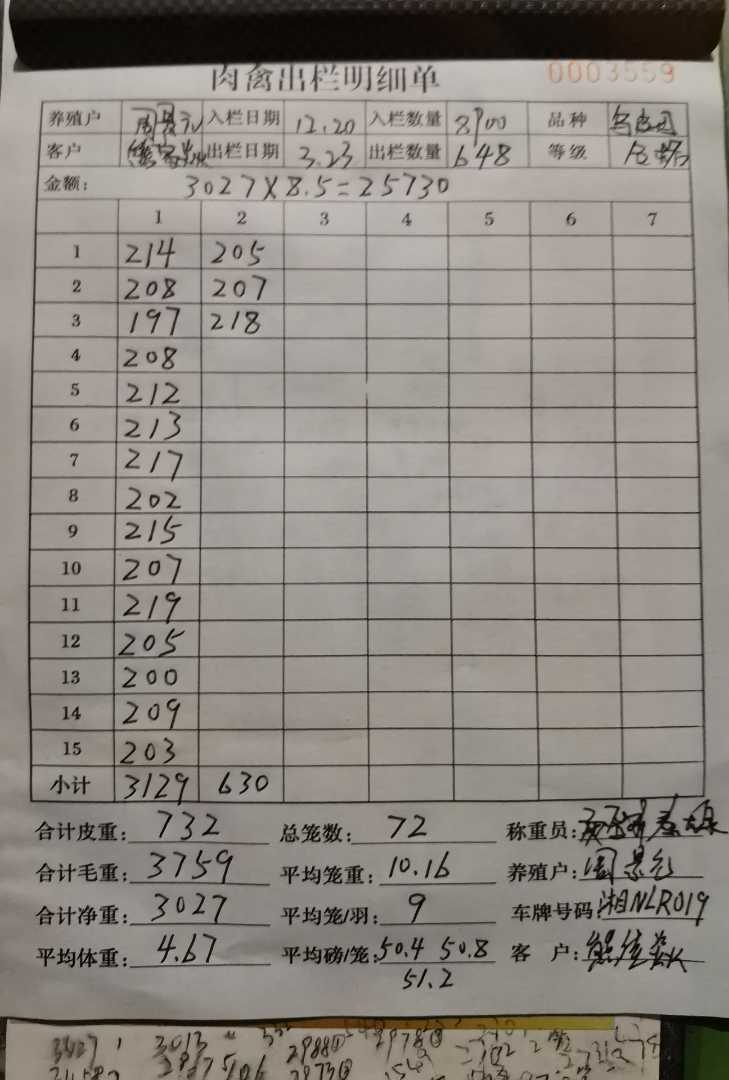 肉禽出栏明细单 0003559
养殖户 入栏日期 12.20 入栏数量 8900 品种
客户 出栏日期 3.23 出栏数量 648 等级
金额: 3027X8.5=25730
1 2 3 4 5 6 7
1 214 205
2 208 207
3 197 218
4 208
5 212
6 213
7 217
8 202
9 215
10 207
11 219
12 205
13 200
14 209
15 203
小计 3129 630
合计皮重: 732 总笼数: 72 称重员:
合计毛重: 3759 平均笼重: 10.16 养殖户: 周
合计净重: 3027 平均笼/羽: 9 车牌号码 湘NLR019
平均体重: 4.67 平均磅/笼: 50.4 50.8 客 户:
51.2
3013